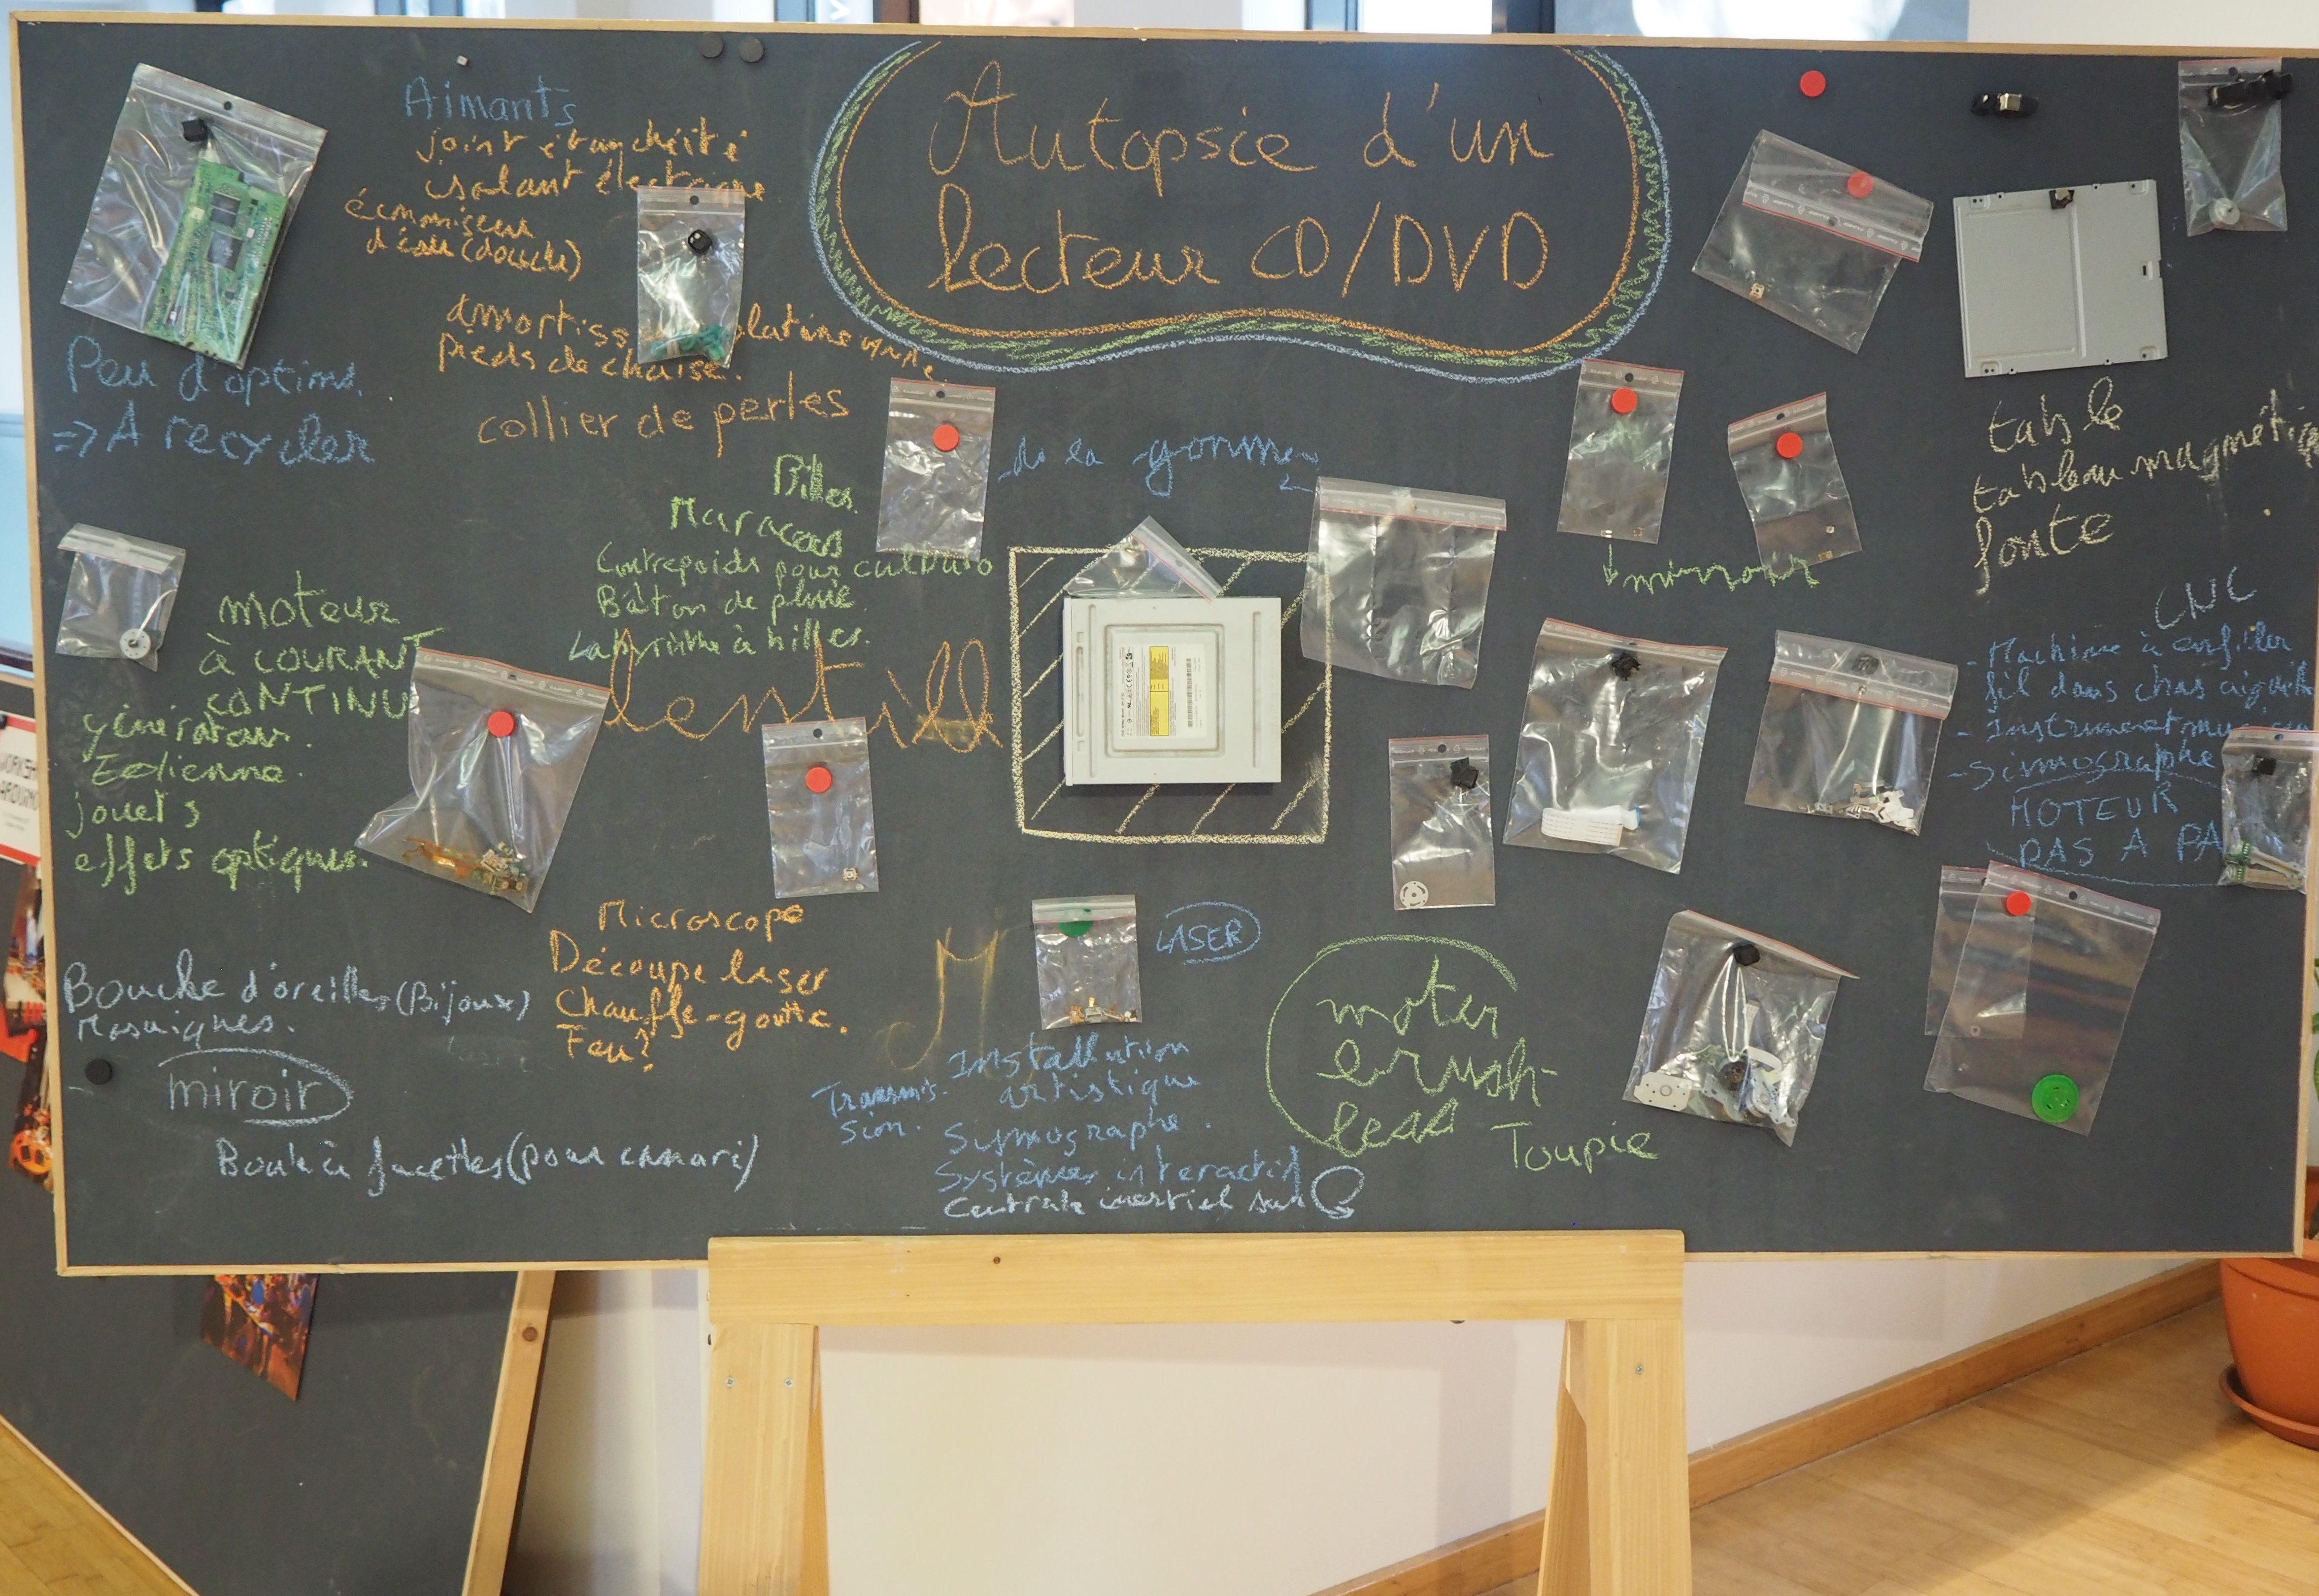 Autopsie d'un
lecteur CD/DVD
Aimants
joint étanchéité
isolant électrique
économiseur
d'eau (douche)
amortiss platine
pieds de chaise.
collier de perles
Peu d'options.
=> A recycler
de la gomme
Billes
Maracas
Contrepoids pour culbuto
Bâton de pluie.
Labyrinthe à billes.
moteur
à COURANT
CONTINU
générateur.
Eolienne.
jouets
effets optiques.
lentill
Microscope
Découpe laser
Chauffe-goutte.
Feu?
Bouche d'oreilles (Bijoux)
Mosaiques.
miroir
Boule à facettes (pour canari)
M
LASER
Installation
artistique
Transmis-
sion.
Sismographe.
Système interactif
Centrale inertiel sur
moter
brush-
less
Toupie
mirroir
table
tableau magnéti
fonte
CNC
- Machine à enfiler
fil dans chas aiguille
- Instrument mus
- Sismographe
MOTEUR
PAS A PA